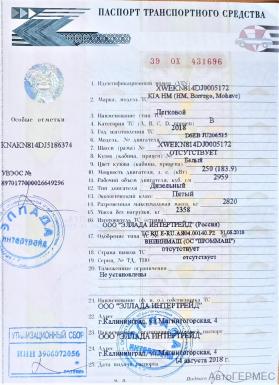 ПАСПОРТ ТРАНСПОРТНОГО СРЕДСТВА
39 ОХ 431696
Особые отметки
KNAKN814DJ5186374
УВЭОС №
1. Идентификационный номер (VIN) XWEKN814DJ0005172
2. Марка, модель ТС KIA HM (HM, Borrego, Mohave)
3. Наименование (тип ТС) Легковой
4. Категория ТС (А, В, С, D, прицеп) B
5. Год изготовления ТС 2018
6. Модель, № двигателя D6EB
7. Шасси (рама) № XWEKN814DJ0005172
8. Кузов (кабина, прицеп) № ОТСУТСТВУЕТ
9. Цвет кузова (кабины, прицепа) Белый
10. Мощность двигателя, л. с. (кВт) 250 (183.9)
11. Рабочий объем двигателя, куб. см 2959
12. Тип двигателя Дизельный
13. Экологический класс Пятый
14. Разрешенная максимальная масса, кг 2820
15. Масса без нагрузки, кг 2358
16. Изготовитель ТС (страна)
ООО "ЭЛЛАДА ИНТЕРТРЕЙД" (Россия)
17. Одобрение типа ТС №
18. Страна вывоза ТС отсутствует
19. Серия, № ТД, ТПО отсутствует
20. Таможенные ограничения
Не установлены
21. Наименование (ф. и. о.) собственника ТС
ООО "ЭЛЛАДА ИНТЕРТРЕЙД"
22. Адрес г.Калининград, ул. Магнитогорская, 4
23. Наименование организации, выдавшей паспорт
ООО "ЭЛЛАДА ИНТЕРТРЕЙД"
24. Адрес г.Калининград, ул. Магнитогорская, 4
25. Дата выдачи паспорта августа 2018 г.
ЭЛЛАДА
ИНТЕРТРЕЙД
УТИЛИЗАЦИОННЫЙ СБОР
ИНН 3906072056
М. П.
АвтоГЕРМЕС